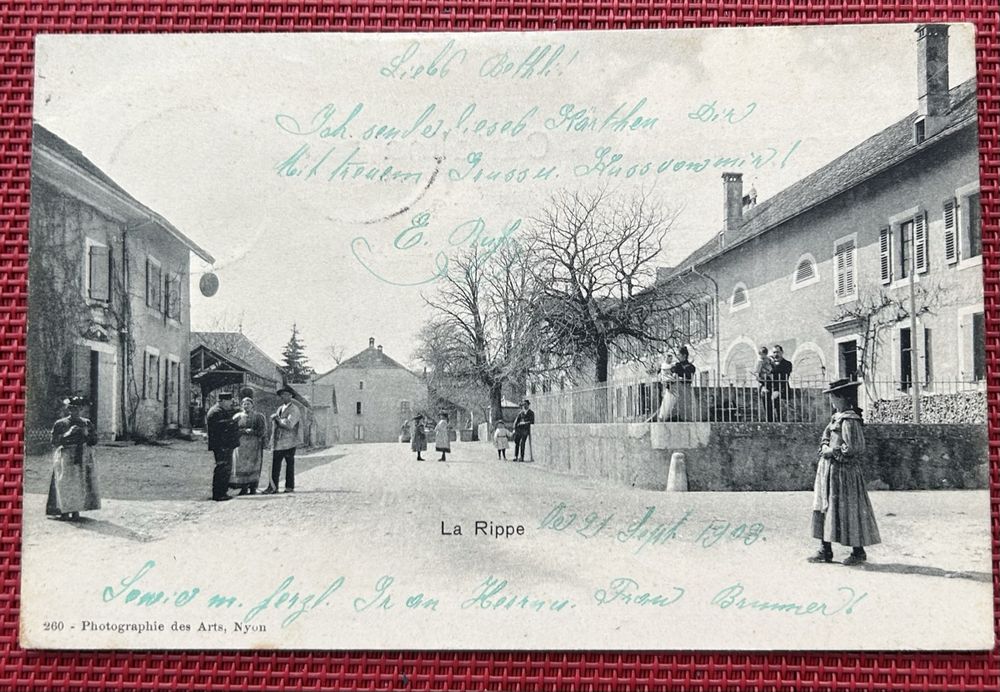 Liebs Bethli!
Ich sende dieses Kärthen Dir
Mit treuem Gruss u. Kuss von mir!
E.
La Rippe
21 Sept 1903.
Sowie m. herzl. Gr an Herrn u. Frau Brunner!
260 - Photographie des Arts, Nyon